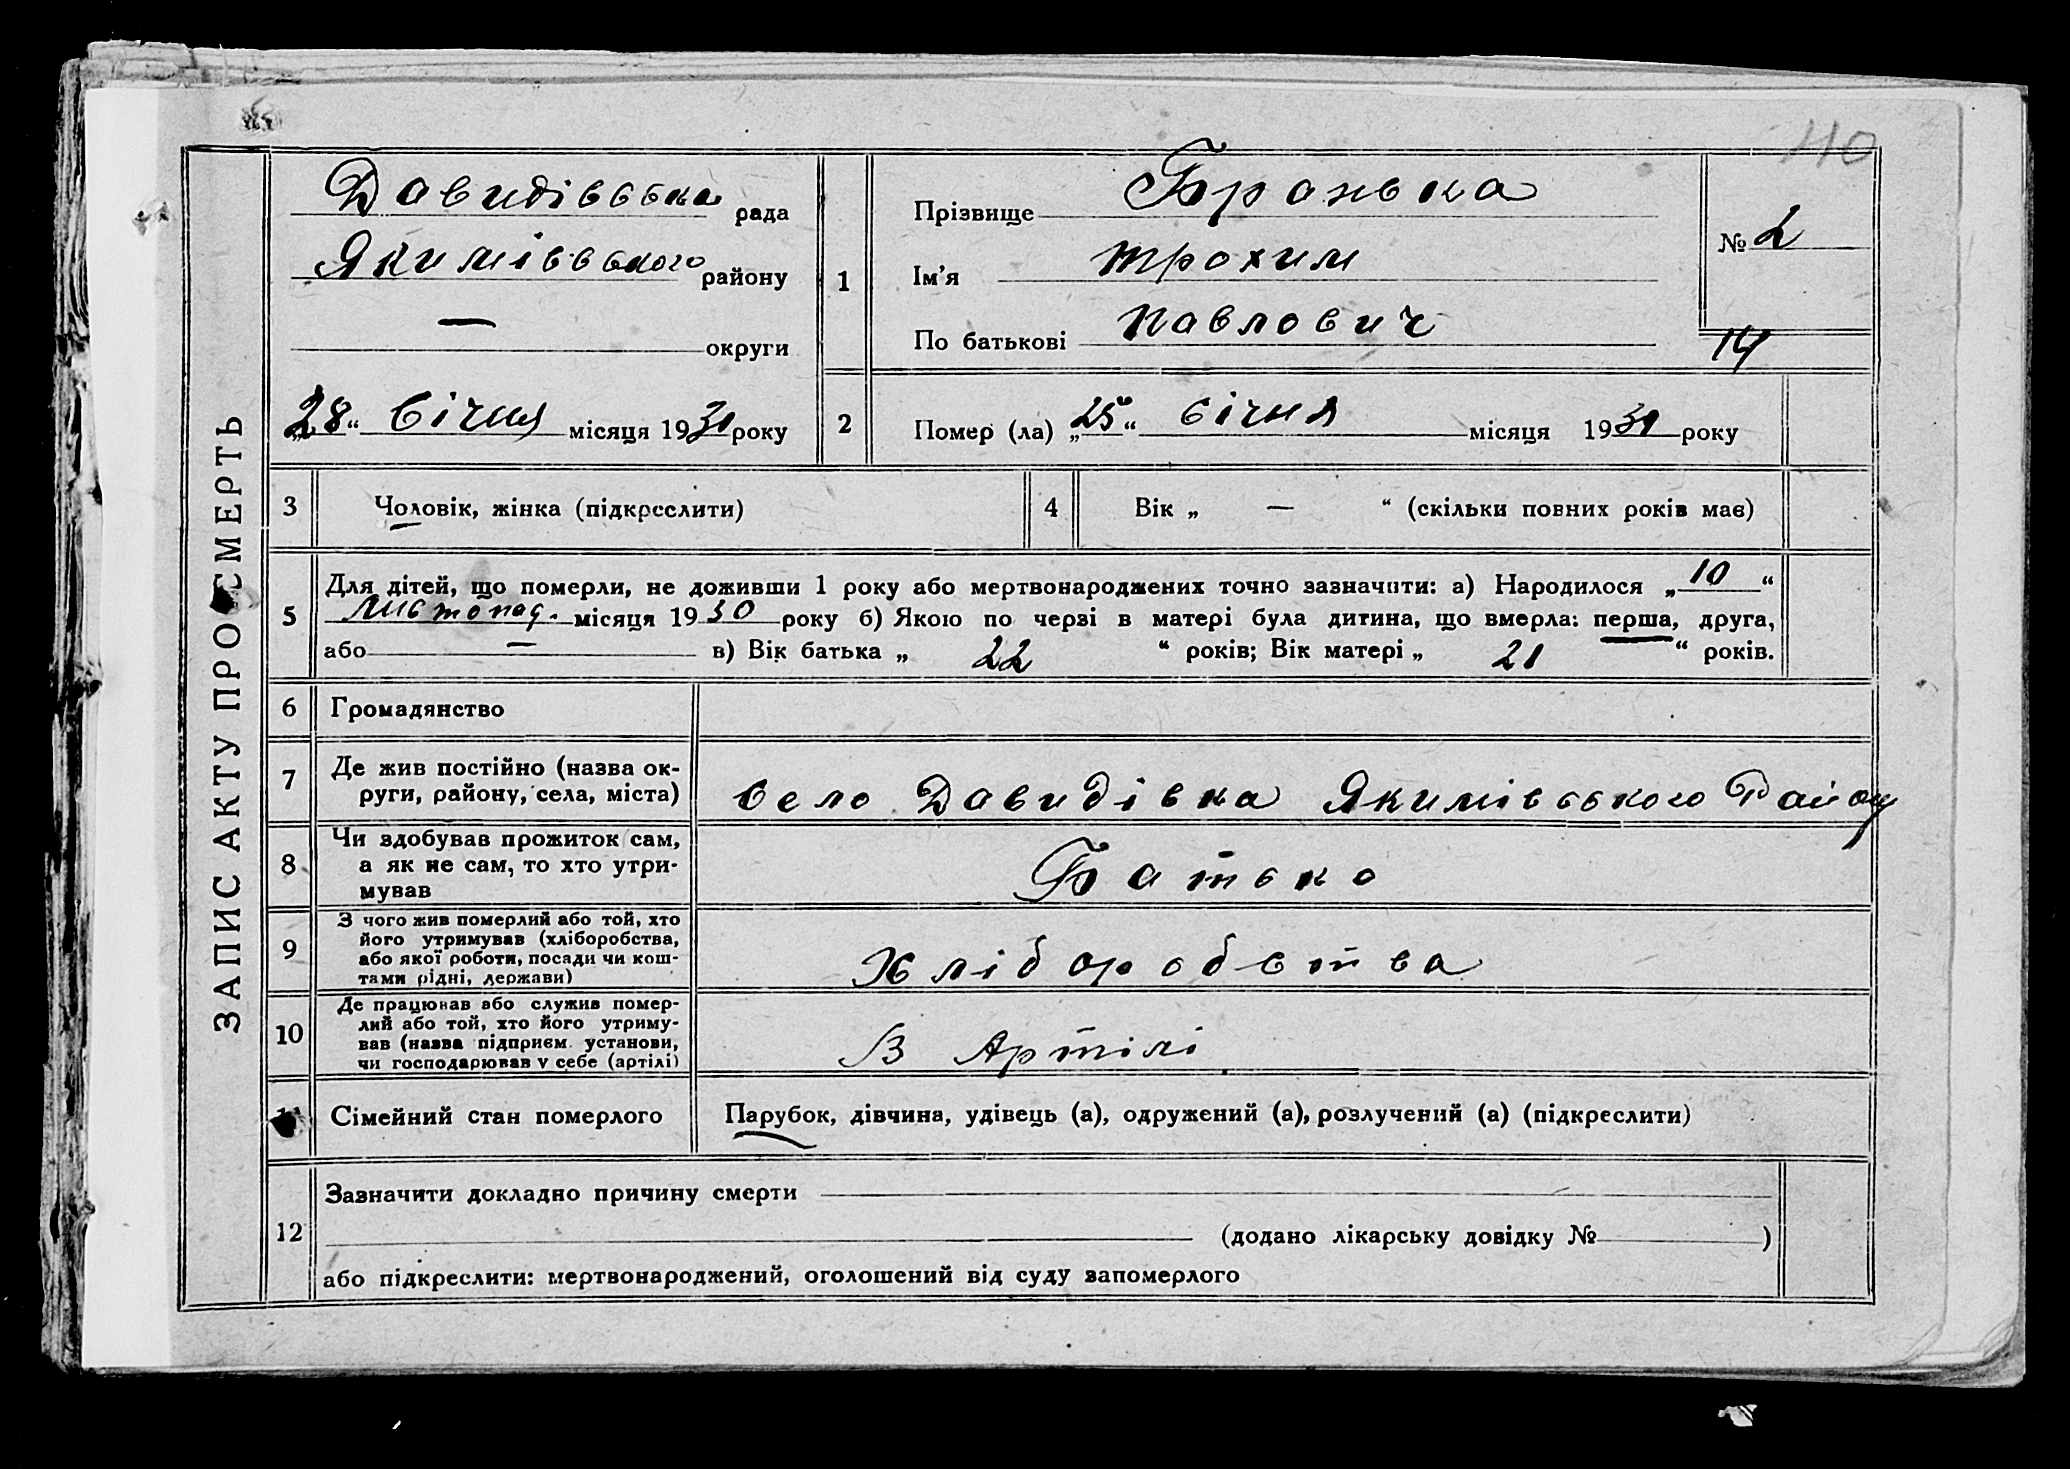 40
ЗАПИС АКТУ ПРО СМЕРТЬ
Давидівська рада
Якимівського району
— округи
„28“ Січня місяця 1931 року
1
Прізвище Бранька
Ім'я Трохим
По батькові Павлович
№ 2
14
2
Помер (ла) „25“ Січня місяця 1931 року
3 Чоловік, жінка (підкреслити)
4 Вік „ — “ (скільки повних років має)
5
Для дітей, що померли, не доживши 1 року або мертвонароджених точно зазначити: а) Народилося „10“
Листопад. місяця 1930 року б) Якою по черзі в матері була дитина, що вмерла: перша, друга,
або — в) Вік батька „ 22 “ років; Вік матері „ 21 “ років.
6 Громадянство
7 Де жив постійно (назва ок-
руги, району, села, міста)
Село Давидівка Якимівського Району
8 Чи здобував прожиток сам,
а як не сам, то хто утри-
мував
Батько
9 З чого жив померлий або той, хто
його утримував (хліборобства,
або якої роботи, посади чи кош-
тами рідні, держави)
Хліборобства
10 Де працював або служив помер-
лий або той, хто його утриму-
вав (назва підприєм. установи,
чи господарював у себе (артілі)
В Артілі
Сімейний стан померлого
Парубок, дівчина, удівець (а), одружений (а), розлучений (а) (підкреслити)
12
Зазначити докладно причину смерти
(додано лікарську довідку № )
або підкреслити: мертвонароджений, оголошений від суду запомерлого